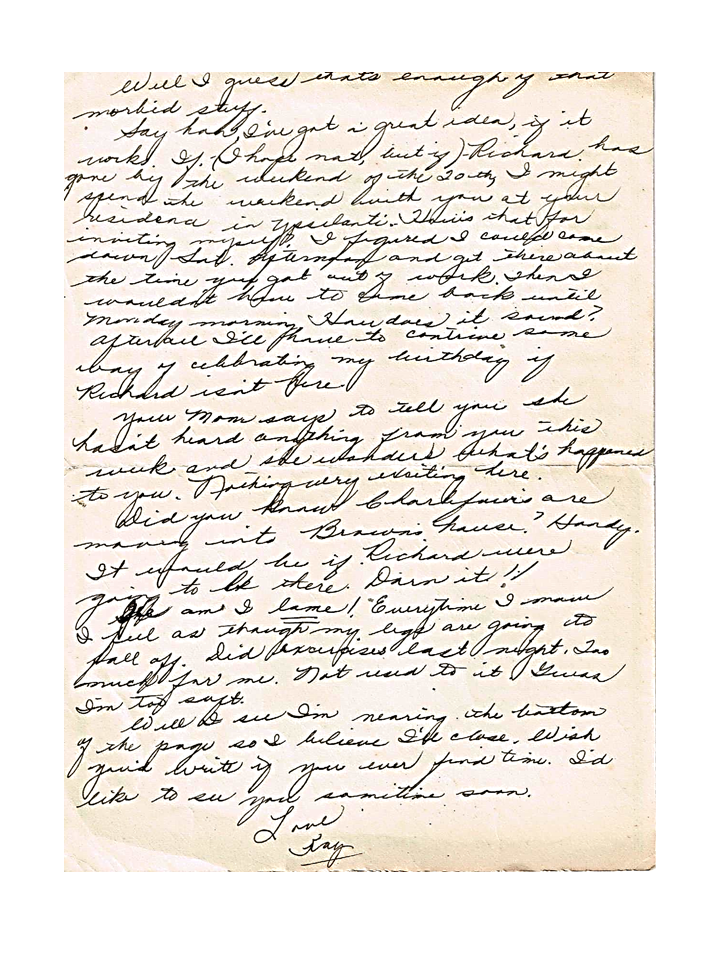 Well I guess thats enough of that
morbid stuff.
Say hah, I've got a great idea, if it
works. If (I hope not, but if) Richard has
gone by the weekend of the 20th, I might
spend the weekend with you at your
residence in Ypsilanti. How's that for
inviting myself? I figured I could come
down Sat. afternoon and get there about
the time you got out of work. Then I
wouldn't have to come back until
Monday morning. How does it sound?
After all I'll have to contrive some
way of celebrating my birthday if
Richard isn't here.
Your Mom says to tell you she
hasn't heard anything from you this
week and she wonders what's happened
to you. Nothing very exciting here.
Did you know are
moving into Brown's house? Handy.
It would be if Richard were
going to be there. Darn it!!
am I lame! Everytime I move
I feel as though my legs are going to
fall off. Did exercises last night. Too
much for me. Not used to it I guess
I'm too soft.
Well I see I'm nearing the bottom
of the page so I believe I'll close. Wish
you'd write if you ever find time. I'd
like to see you sometime soon.
Love
Kay